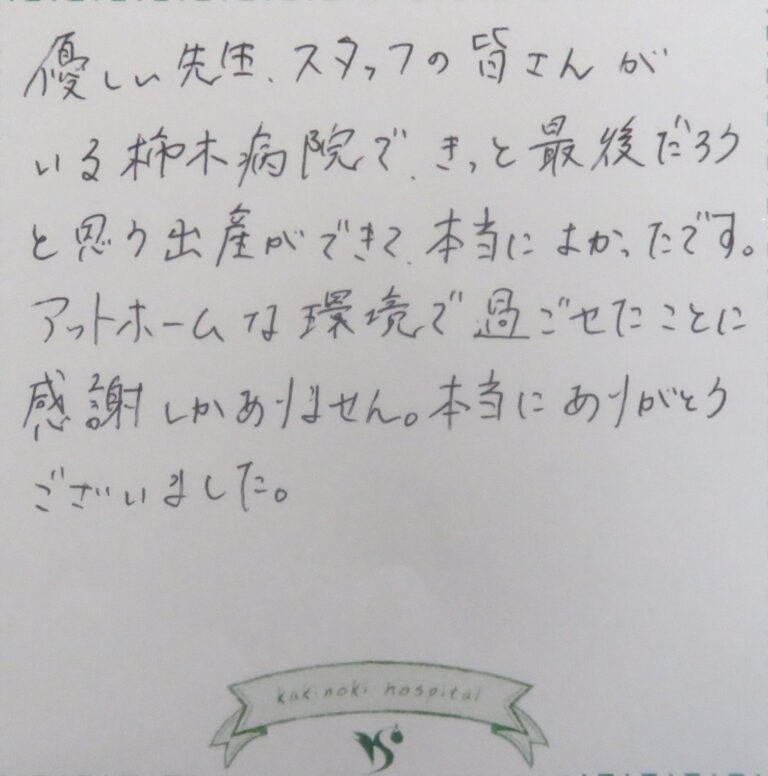 優しい先生、スタッフの皆さんが
いる柿木病院で、きっと最後だろう
と思う出産ができて、本当によかったです。
アットホームな環境で過ごせたことに
感謝しかありません。本当にありがとう
ございました。
kakinoki hospital